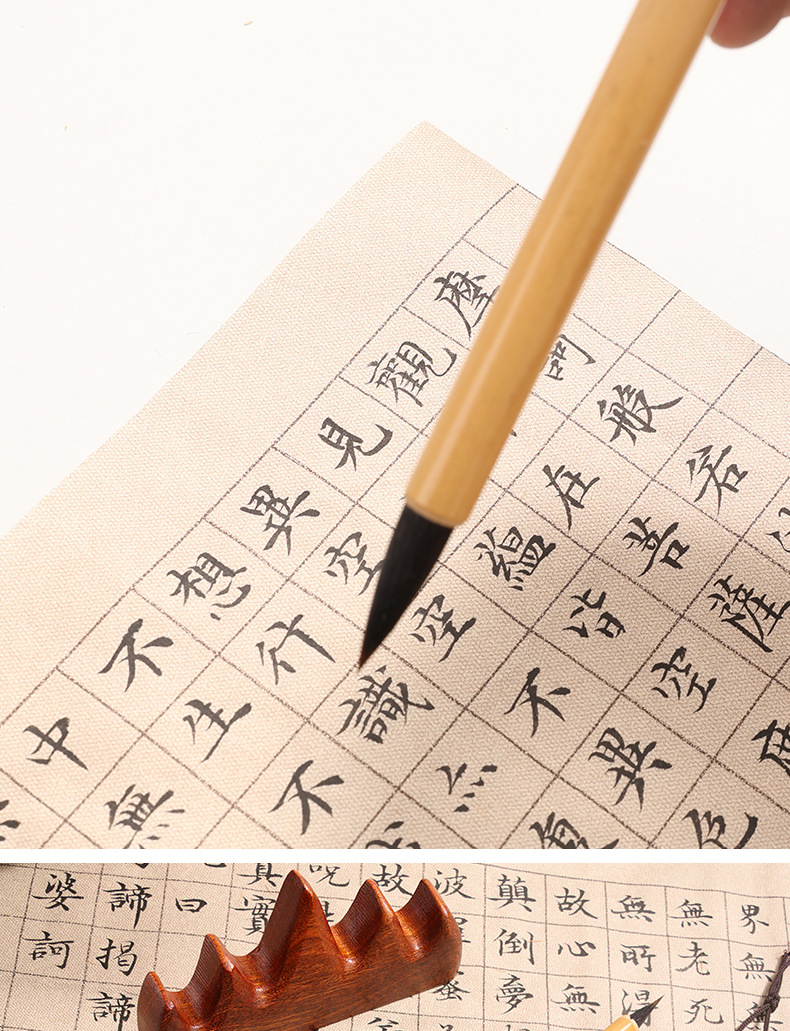 摩訶般若
觀在菩薩
見蘊皆空度
異空空不異色
想行識亦
不生不
中無
界無無
無老死
無所得
故心無
顛倒夢
波蜜
故
呪
真實
曰
諦揭諦
婆訶